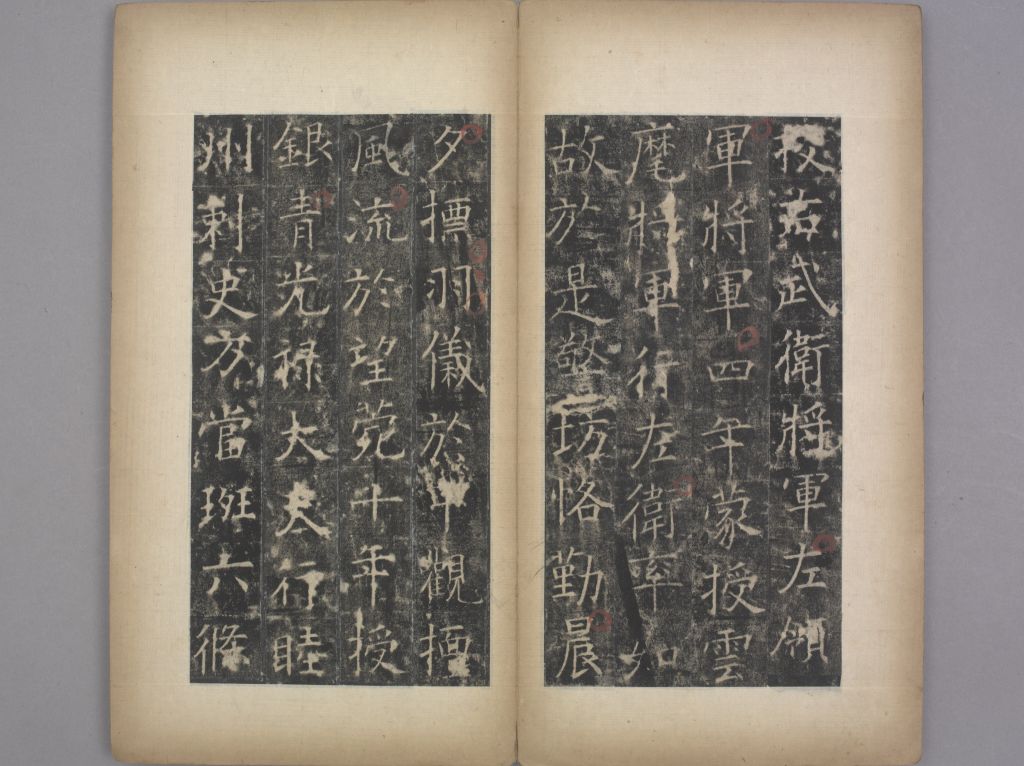 校右武衛將軍左領
軍將軍四年蒙授雲
麾將軍行左衛率如
故於是警坊恪勤晨
夕摽羽儀於甲觀摇
風流於望菀十年授
銀青光祿大夫行睦
州刺史方當班六條